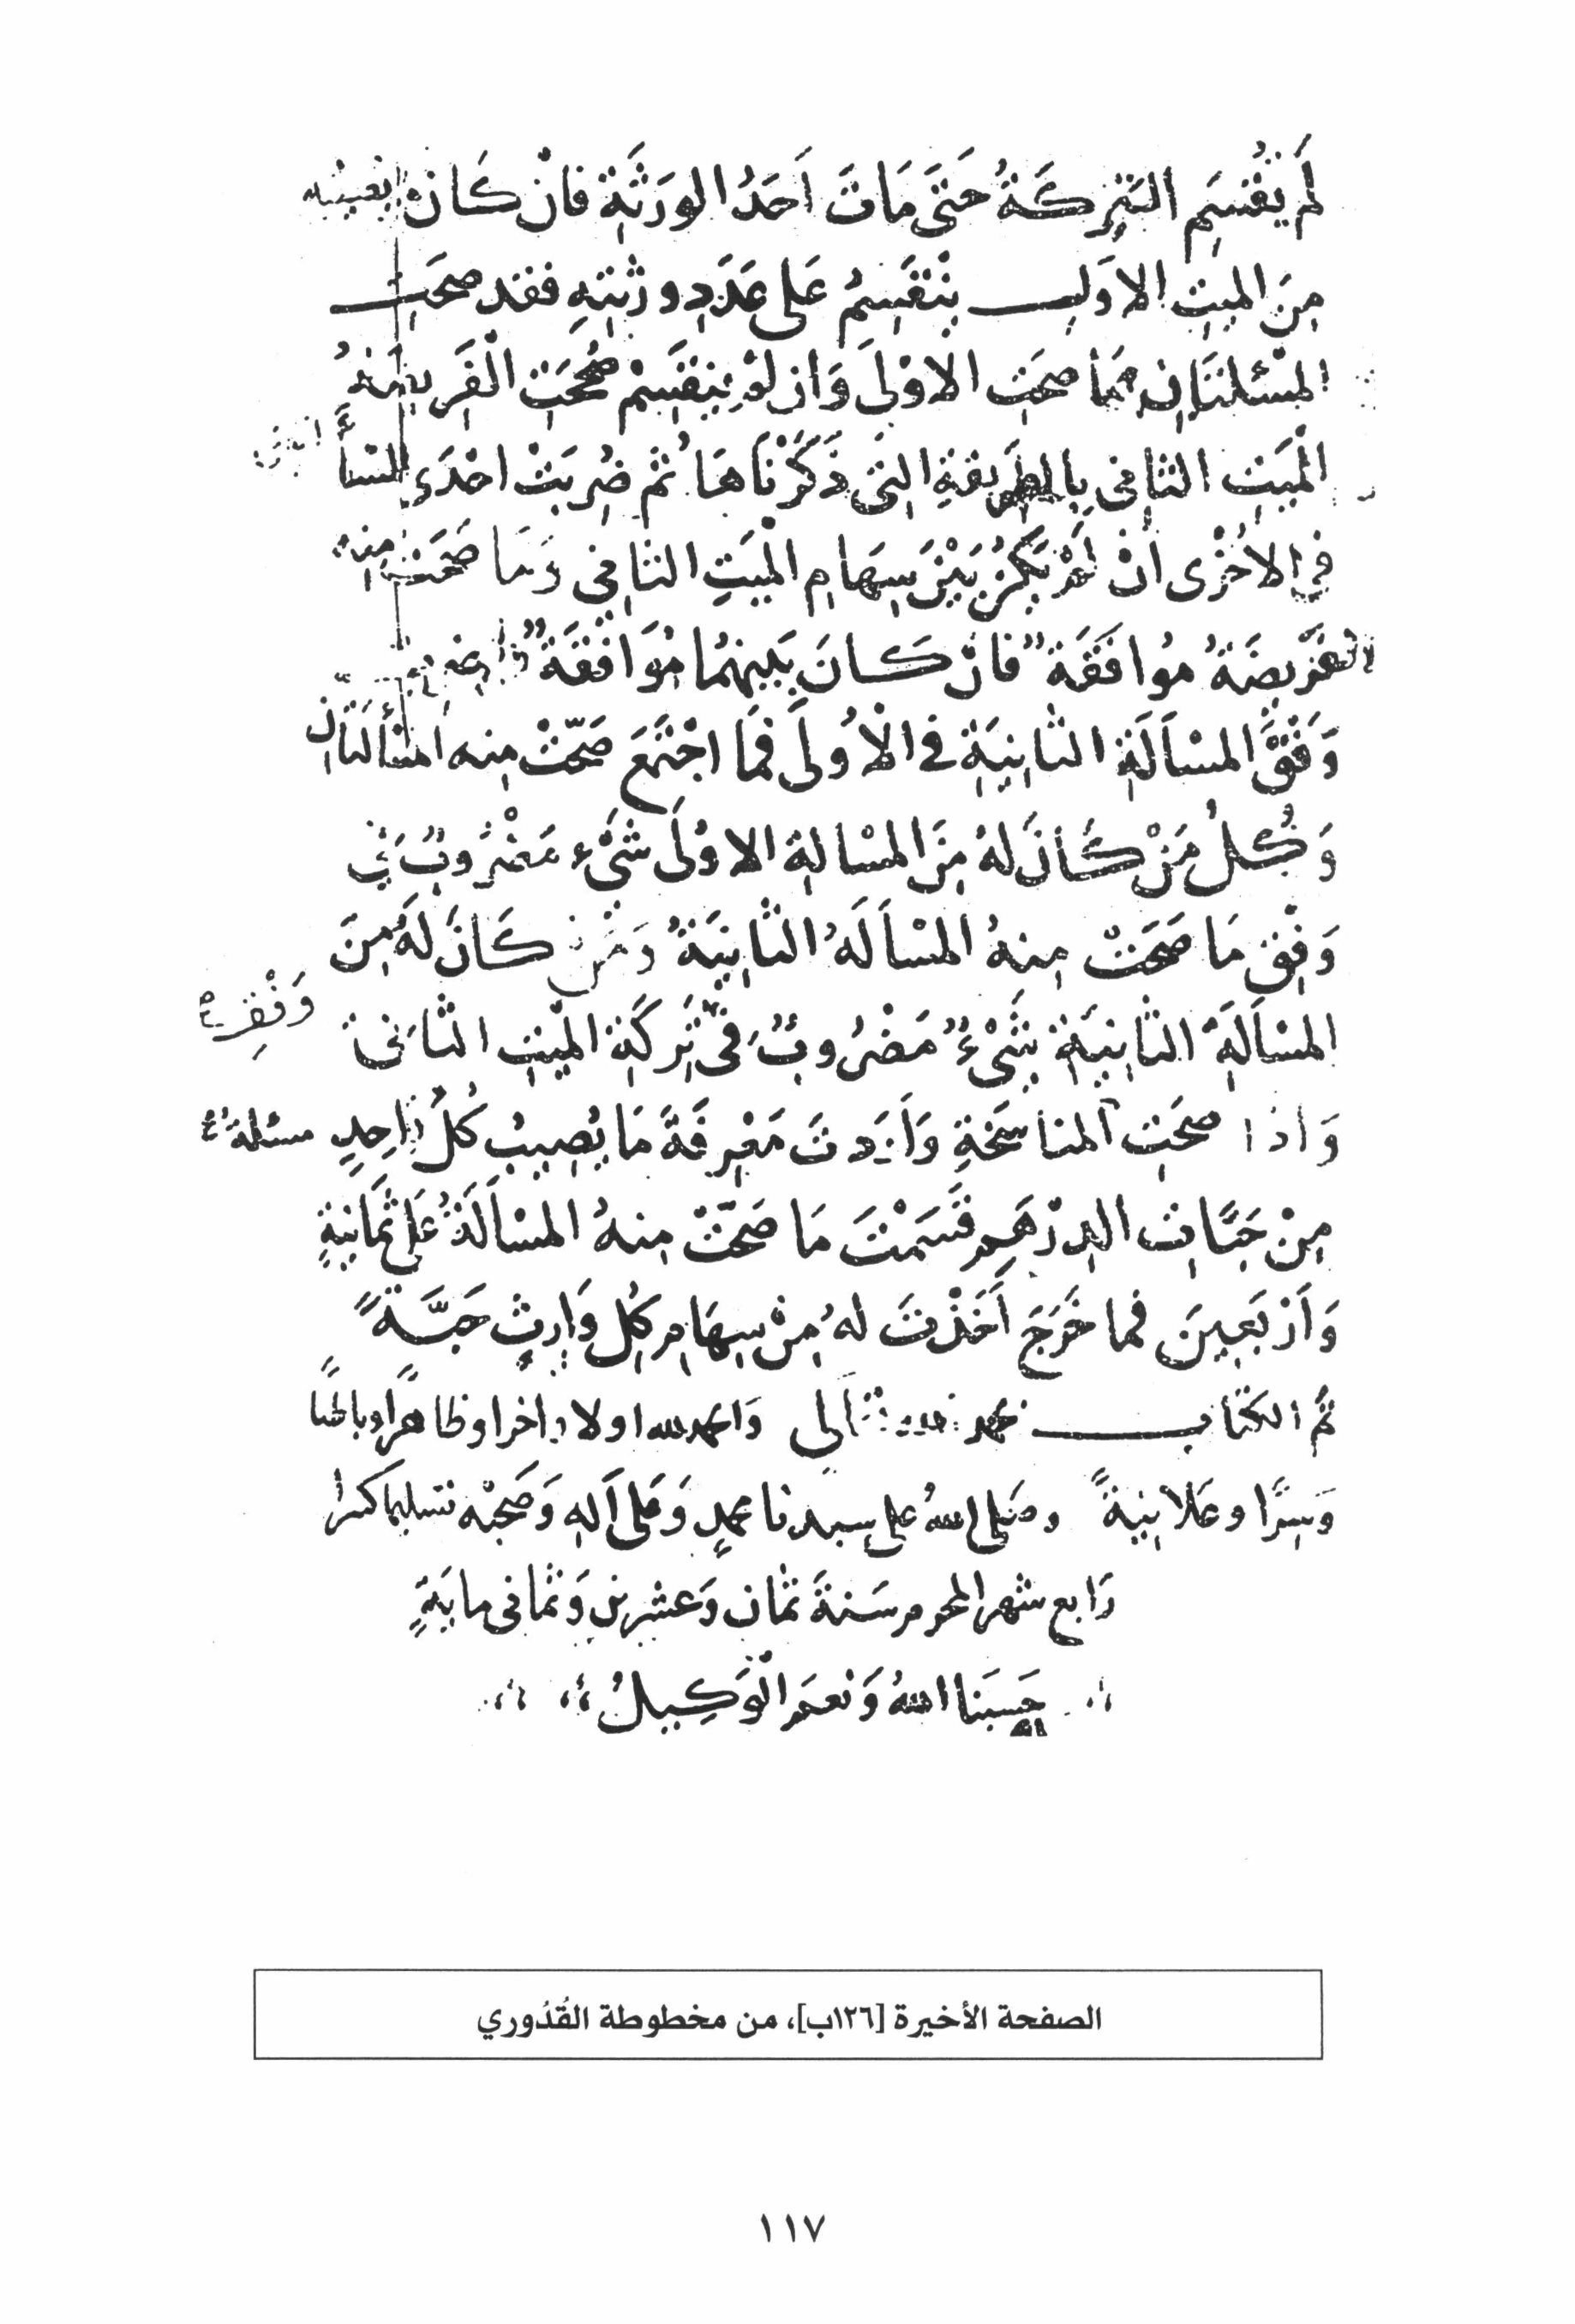 لَم يُقْسَمِ التَرِكَةُ حَتَى مَاتَ اَحَدُ الورَثَةِ فانْ كَانَ نصيبُه
مِنَ الميتِ الاَولِ ينْقَسِمُ عَلى عَدَدِ ورَثتِهِ فقد صحَتِ
المسْئلتَانِ مما صحتِ الاوْلَى وَان لَمْ ينقَسِمْ صُححَتِ الْفَريضَةُ
الْمَيَتِ الثانِي بِالطَرِيقةِ التِى ذَكَرْنَاهَا ثم ضُرِبَتْ احْدَى المسْأ
فِي الاُخْرى انْ لَمْ يَكُنْ بَيْنَ سِهَامِ الْمَيَتِ الثانِي وَمَا صَحَتْ منه
الفَرِيضَةُ مُوافَقَة فانْ كَانَ بَيْنهُمَا مُوَافَقَةٌ
وَفْقَ المسْاَلَةِ الثانِيَةِ في الْاُولَى فَمَا اجْتَمَعَ صَحّتْ مِنه المسْألَتَانِ
وَكُلُ مَنْ كَانَ لهُ مِنَ المسْالةِ الاوْلَى شَىْءٌ مَضْرُوبٌ فِي
وَفِق مَا صَحَتْ مِنهُ المسْاَلَةُ الثانِيَةُ وَمَنْ كَانَ لَهُ مِنَ
المسْاَلَةِ الثانِيَةِ شَىْءٌ مَضْرُوبٌ فِى تَرِكَةِ الْمَيتِ الثانى
وَفْقِ
وَاذَا صحَتِ المناسَخةِ وَاَرَدتَ مَعْرِفَةَ مَا يُصِيبُ كُلُ وَاحِدٍ
مسئلة
مِنْ حَبَّاتِ الدِرْهَمِ قَسَمْتَ مَا صَحّتْ مِنهُ المسْالَةُ عَلى ثَمَانيَةٍ
وَاَرْبَعِينَ فما خَرَجَ اَخَذْتَ لهُ مِنْ سِهَامِ كُلِ وَارِثٍ حَبَّةً
تم الكتَاب بحمد الله تعَالى وَالحمدلله اولا واخرا وظاهرًا وباطنًا
وَسِرًا وعَلانِيَةً وصَلى اللهُ على سيدنا محمدٍ وَعَلى آلهِ وَصَحبْه تسليما كثيرا
رَابع شهر المحرم سَنةَ ثمان وَعشرين وَثمانى مايَةٍ
حَسبَنا اللهُ وَنعمَ الْوَكِيلُ
الصفحة الأخيرة [١٢٦ب]، من مخطوطة القُدُوري
١١٧